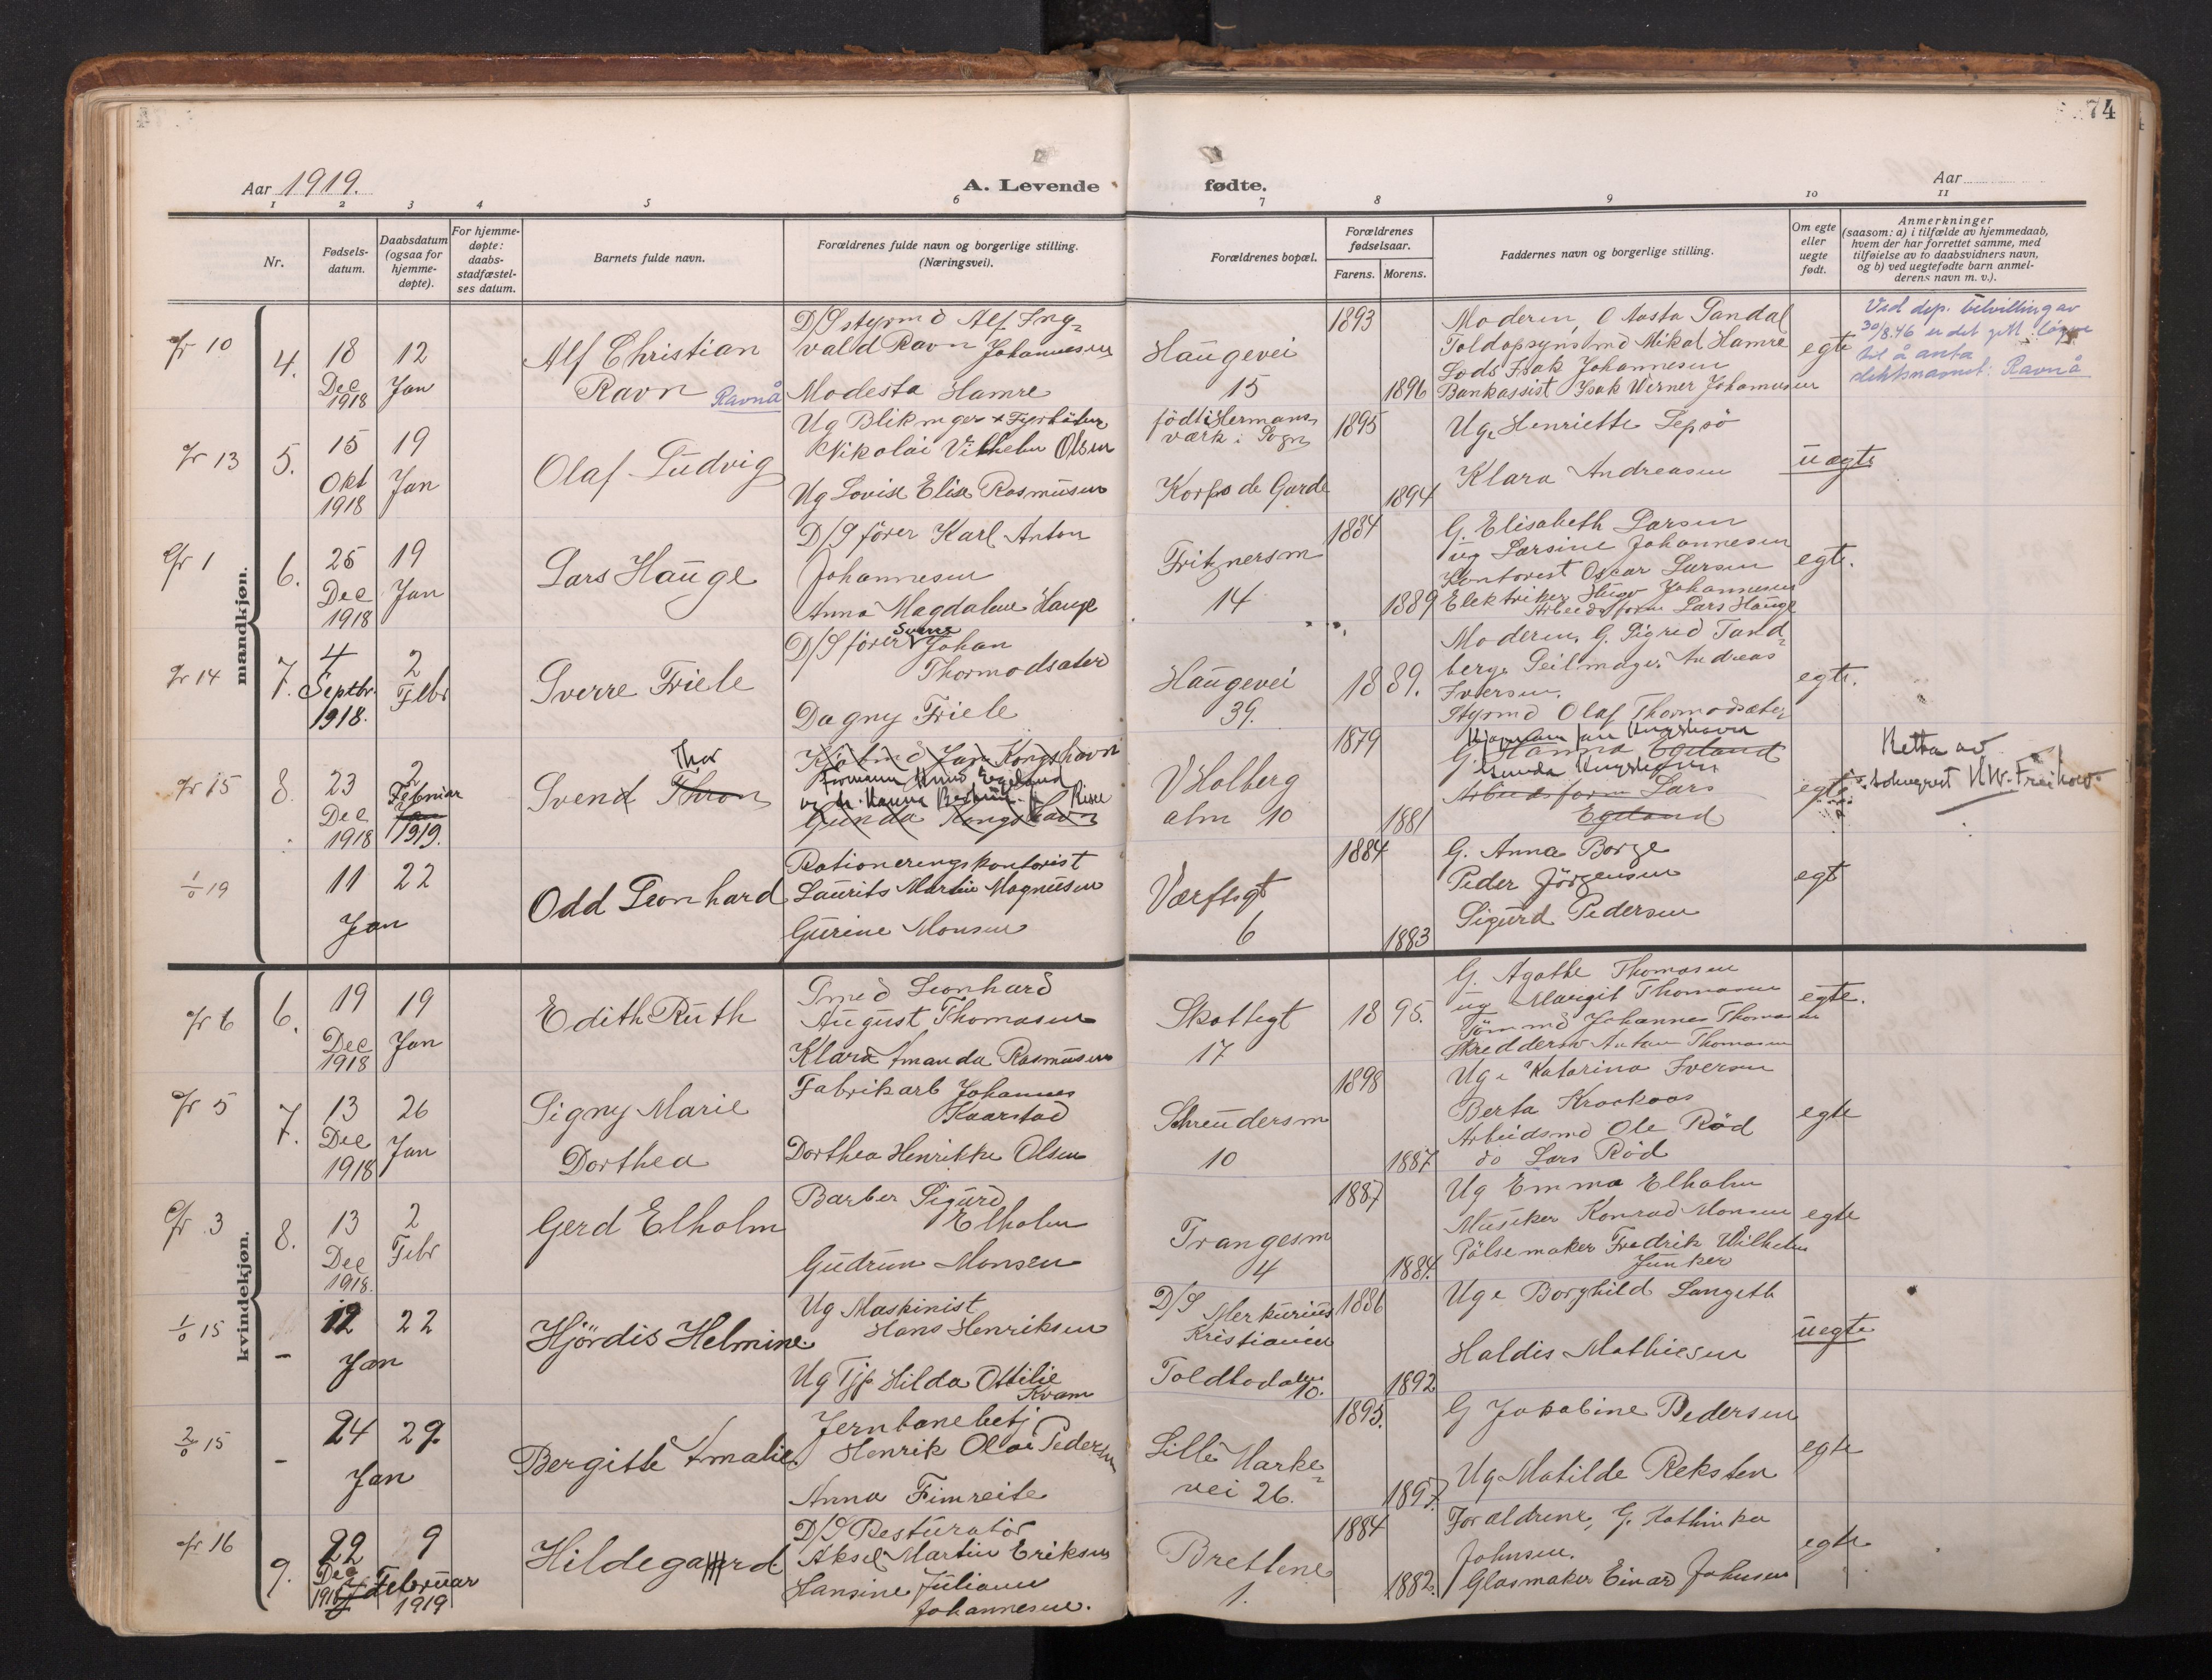 74
Aar 1919.
A. Levende fødte.
Aar
1 2 3 4 5 6 7 8 9 10 11
Nr.
Fødsels-datum.
Daabsdatum (ogsaa for hjemme-døpte).
For hjemme-døpte: daabs-stadfæstel-ses datum.
Barnets fulde navn.
Forældrenes fulde navn og borgerlige stilling. (Næringsvei).
Forældrenes bopæl.
Forældrenes fødselsaar.
Farens. Morens.
Faddernes navn og borgerlige stilling.
Om egte eller uegte født.
Anmerkninger (saasom: a) i tilfælde av hjemmedaab, hvem der har forrettet samme, med tilføielse av to daabsvidners navn, og b) ved uegtefødte barn anmel-derens navn m. v.).
mandkjøn.
10
4.
18 Dec 1918
12 Jan
Alf Christian
Ravn Ravnå
D/S styrmd Alf Ing-
vald Ravn Johannesen
Modesta Hamre
Haugevei
15
1893
1896
Moderen, Aasta Sandal
Toldopsynsmd Mikal Hamre
Lods Isak Johannesen
Bankassist Isak Werner Johannesen
egte
Ved dep. bevilling av
30/8.46 er det gitt løyve
til å anta
slektsnavnet: Ravnå
13
5.
15 Okt 1918
19 Jan
Olaf Ludvig
Ug Blikmger + Fyrbøter
Nikolai Vilhelm Olsen
Ug Lovise Elise Rasmusen
født i Hermans
værk i Sogn
Korps de Garde
1895
1894
Uge Henriette Lepsö
Klara Andreasen
uegte
1
6.
25 Dec 1918
19 Jan
Lars Hauge
D/S fører Karl Anton
Johannesen
Anna Magdalene Hauge
Fritznersm
14
1884
1889
G. Elisabeth Larsen
ug Larsine Johannesen
Kontorist Oscar Larsen
Elektriker Hugo Johannesen
Arbeidsform Lars Hauge
egte.
14
7.
4 Septbr. 1918.
2 Febr
Sverre Friele
D/S fører Sverre Johan
Thormodsæter
Dagny Friele
Haugevei
39.
1889.
Moderen, G. Sigrid Sand-
berg. Seilmager Andreas
Iversen.
Styrmd Olaf Thormodsæter
egte.
15
8.
23 Dec 1918
2 Februar
Jan
1919.
Svend Thron
Thor
Kjøbmd Jan Kongshavn
Formann Knud Egeland
Hanna
Gunda Kongshavn
V Holberg
alm 10
1879
1881
G. Hanna Egeland
Gunda Kongshavn
Arbeidsform Lars
Egeland
egte
Retta av
sokneprest
19
11 Jan
22
Odd Leonhard
Rationeringskontorist
Laurits Martin Magnusen
Gurine Monsen
Værftsgt
6
1884
1883
G. Anna Borge
Peder Jörgensen
Sigurd Pedersen
egt
kvindekjøn.
6
6.
19 Dec 1918
19 Jan
Edith Ruth
Smed Leonhard
August Thomasen
Klara Amanda Rasmusen
Skottegt
17
1895.
G. Agathe Thomasen
ug Margit Thomasen
Tömmd Johannes Thomasen
Skreddersv Anton Thomasen
egte.
5
7.
13 Dec 1918
26 Jan
Signy Marie
Dorthea
Fabrikarb Johannes
Kaarstad
Dorthea Henrikke Olsen
Schreudersm
10
1898
1887
Uge Katarina Iversen
Berta Krookaas
Arbeidsmd Ole Röd
do Lars Röd
egte
3
8.
13 Dec 1918.
2 Febr
Gerd Elholm
Barber Sigurd
Elholm
Gudrun Monsen
Trangesm
4
1887
1884.
Ug Emma Elholm
Musiker Konrad Monsen
Pölsemaker Fredrik Wilhelm
Junker
egte
15
-
12 Jan
22
Hjördis Helmine
Ug Maskinist
Hans Henriksen
Ug Tjp Hilda Ottilie
Kvam
D/S Merkurius
Kristiania
Toldbodalm
10.
1886
1892
Uge Borghild Langeth
Haldis Mathiesen
uegte
15
-
24 Jan
29.
Bergitte Amalie
Jernbanebetj
Henrik Olai Pedersen
Anna Fimreite
Lille Marke-
vei 26.
1895.
1897.
G Jakobine Pedersen
Ug Matilde Reksten
egte
16
9.
22 Dec 1918
9 Februar 1919
Hildegaard
D/S Resturatör
Aksel Martin Eriksen
Hansine Juliane
Johannesen.
Brettene
1.
1884
1882.
Forældrene, G. Kathinka
Johnsen.
Glasmaker Einar Johnsen
egte